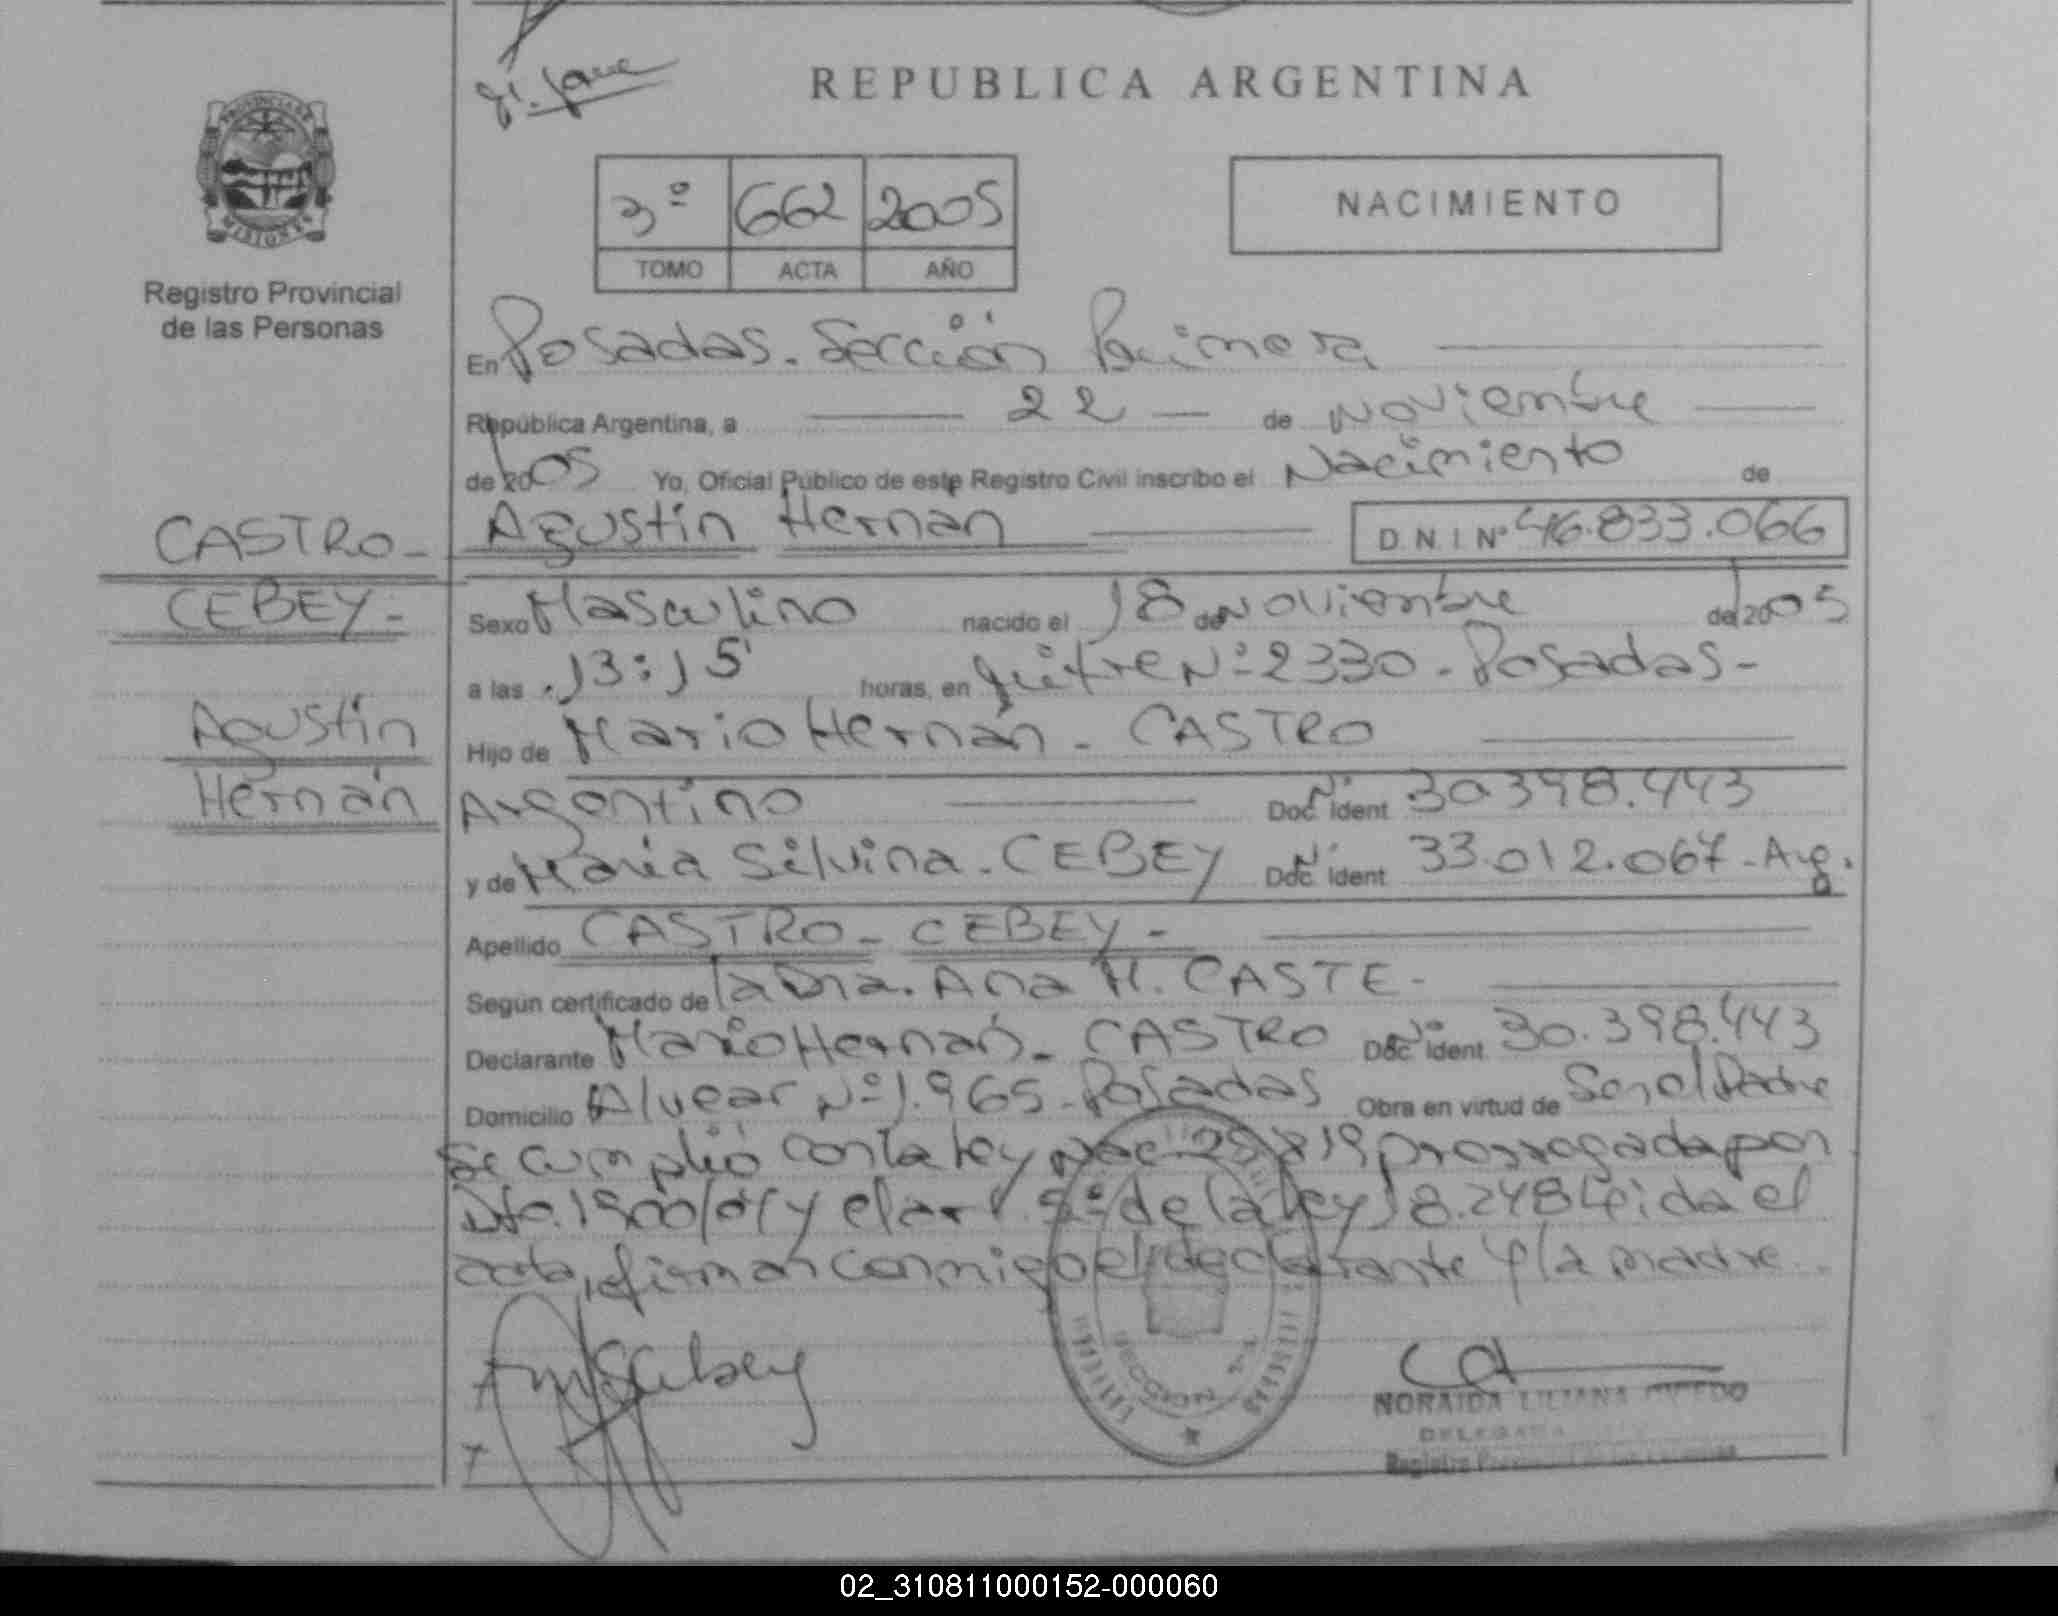 REPUBLICA ARGENTINA
PROVINCIA DE
MISIONES
Registro Provincial
de las Personas
3º 662 2005
TOMO ACTA AÑO
NACIMIENTO
En Posadas. Sección Primera
República Argentina, a 22 de Noviembre
de 2005 Yo, Oficial Público de este Registro Civil inscribo el Nacimiento de
CASTRO-
CEBEY-
Agustín
Hernán
Agustín Hernán D.N.I Nº 46.833.066
Sexo Masculino nacido el 18 de Noviembre de 2005
a las 13:15 horas, en Nº 2330-Posadas-
Hijo de Mario Hernán - CASTRO
Argentino Doc. Nº Ident 30.398.443
y de María Silvina - CEBEY Doc. Nº Ident 33.012.067-Arg.
Apellido CASTRO- CEBEY-
Según certificado de la Dra. Ana M. CASTE-
Declarante Mario Hernán- CASTRO Doc. Nº Ident 30.398.443
Domicilio Alvear Nº 1.965-Posadas Obra en virtud de Ser el Padre
Se cumplió con la ley Nac. prorrogada por
Dto. y el art. 5º de la ley 18.248 Leida el
acta, firman conmigo el declarante y la madre.
SECCION
NORAIDA LILIANA
DELEGADA
Registro Provincial de las Personas
02_310811000152-000060